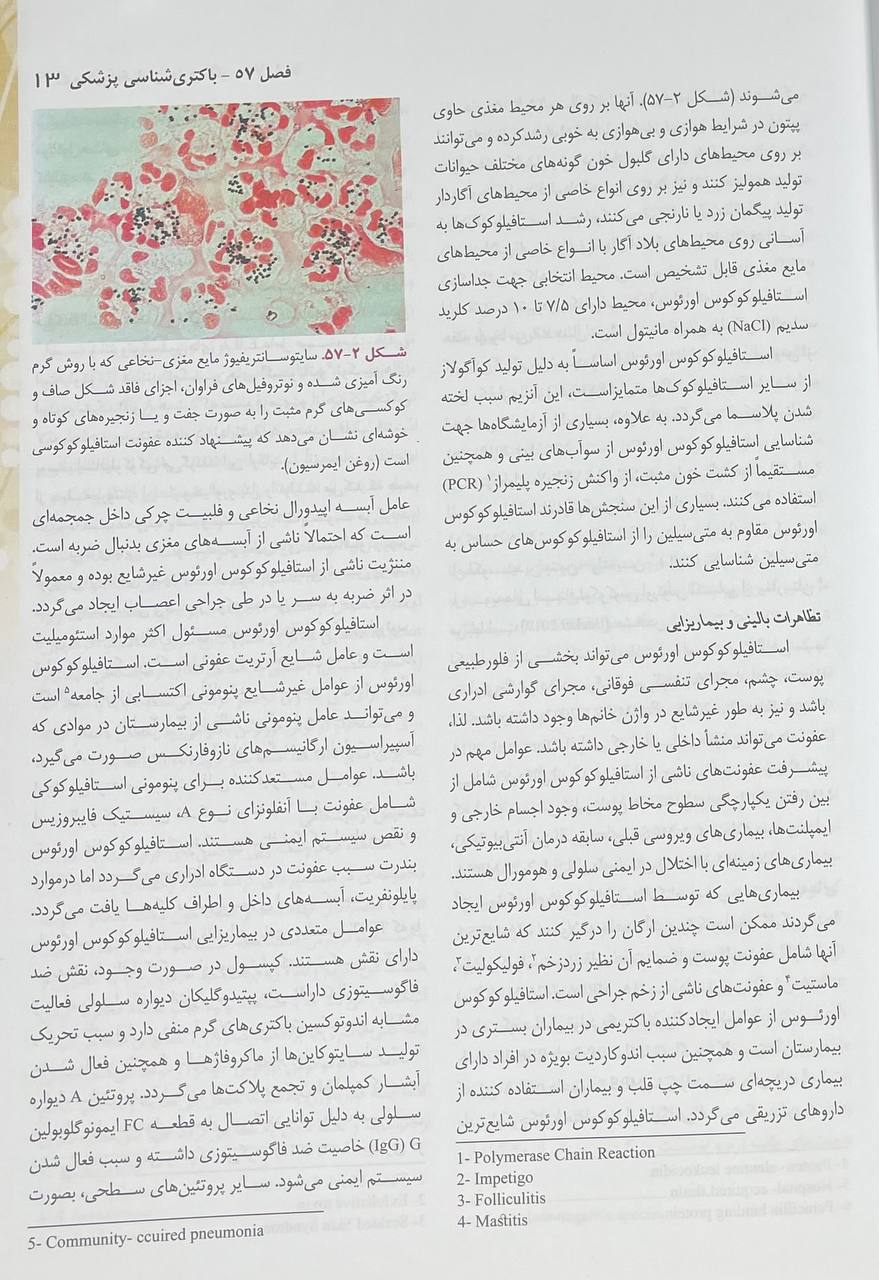 فصل ۵۷ - باکتری‌شناسی پزشکی ۱۳
می‌شوند (شکل ۲-۵۷). آنها بر روی هر محیط مغذی حاوی
پپتون در شرایط هوازی و بی‌هوازی به خوبی رشدکرده و می‌توانند
بر روی محیط‌های دارای گلبول خون گونه‌های مختلف حیوانات
تولید همولیز کنند و نیز بر روی انواع خاصی از محیط‌های آگاردار
تولید پیگمان زرد یا نارنجی می‌کنند، رشد استافیلوکوک‌ها به
آسانی روی محیط‌های بلاد آگار با انواع خاصی از محیط‌های
مایع مغذی قابل تشخیص است. محیط انتخابی جهت جداسازی
استافیلوکوکوس اورئوس، محیط دارای ۷/۵ تا ۱۰ درصد کلرید
سدیم (NaCl) به همراه مانیتول است.
استافیلوکوکوس اورئوس اساساً به دلیل تولید کوآگولاز
از سایر استافیلوکوک‌ها متمایزاست، این آنزیم سبب لخته
شدن پلاسما می‌گردد. به علاوه، بسیاری از آزمایشگاه‌ها جهت
شناسایی استافیلوکوکوس اورئوس از سوآب‌های بینی و همچنین
مستقیماً از کشت خون مثبت، از واکنش زنجیره پلیمراز۱ (PCR)
استفاده می‌کنند. بسیاری از این سنجش‌ها قادرند استافیلوکوکوس
اورئوس مقاوم به متی‌سیلین را از استافیلوکوکوس‌های حساس به
متی‌سیلین شناسایی کنند.
تظاهرات بالینی و بیماریزایی
استافیلوکوکوس اورئوس می‌تواند بخشی از فلورطبیعی
پوست، چشم، مجرای تنفسی فوقانی، مجرای گوارشی ادراری
باشد و نیز به طور غیرشایع در واژن خانم‌ها وجود داشته باشد. لذا،
عفونت می‌تواند منشأ داخلی یا خارجی داشته باشد. عوامل مهم در
پیشرفت عفونت‌های ناشی از استافیلوکوکوس اورئوس شامل از
بین رفتن یکپارچگی سطوح مخاط پوست، وجود اجسام خارجی و
ایمپلنت‌ها، بیماری‌های ویروسی قبلی، سابقه درمان آنتی‌بیوتیکی،
بیماری‌های زمینه‌ای با اختلال در ایمنی سلولی و هومورال هستند.
بیماری‌هایی که توسط استافیلوکوکوس اورئوس ایجاد
می‌گردند ممکن است چندین ارگان را درگیر کنند که شایع‌ترین
آنها شامل عفونت پوست و ضمایم آن نظیر زردزخم۲، فولیکولیت۳،
ماستیت۴ و عفونت‌های ناشی از زخم جراحی است. استافیلوکوکوس
اورئوس از عوامل ایجادکننده باکتریمی در بیماران بستری در
بیمارستان است و همچنین سبب اندوکاردیت بویژه در افراد دارای
بیماری دریچه‌ای سمت چپ قلب و بیماران استفاده کننده از
داروهای تزریقی می‌گردد. استافیلوکوکوس اورئوس شایع‌ترین
1- Polymerase Chain Reaction
2- Impetigo
3- Folliculitis
4- Mastitis
شکل ۲-۵۷. سایتوسانتریفیوژ مایع مغزی-نخاعی که با روش گرم
رنگ آمیزی شده و نوتروفیل‌های فراوان، اجزای فاقد شکل صاف و
کوکسی‌های گرم مثبت را به صورت جفت و یا زنجیره‌های کوتاه و
خوشه‌ای نشان می‌دهد که پیشنهاد کننده عفونت استافیلوکوکوسی
است (روغن ایمرسیون).
عامل آبسه اپیدورال نخاعی و فلبیت چرکی داخل جمجمه‌ای
است که احتمالاً ناشی از آبسه‌های مغزی بدنبال ضربه است.
مننژیت ناشی از استافیلوکوکوس اورئوس غیرشایع بوده و معمولاً
در اثر ضربه به سر یا در طی جراحی اعصاب ایجاد می‌گردد.
استافیلوکوکوس اورئوس مسئول اکثر موارد استئومیلیت
است و عامل شایع آرتریت عفونی است. استافیلوکوکوس
اورئوس از عوامل غیرشایع پنومونی اکتسابی از جامعه۵ است
و می‌تواند عامل پنومونی ناشی از بیمارستان در موادی که
آسپیراسیون ارگانیسم‌های نازوفارنکس صورت می‌گیرد،
باشد. عوامل مستعدکننده برای پنومونی استافیلوکوکی
شامل عفونت با آنفلونزای نوع A، سیستیک فایبروزیس
و نقص سیستم ایمنی هستند. استافیلوکوکوس اورئوس
بندرت سبب عفونت در دستگاه ادراری می‌گردد اما درموارد
پایلونفریت، آبسه‌های داخل و اطراف کلیه‌ها یافت می‌گردد.
عوامل متعددی در بیماریزایی استافیلوکوکوس اورئوس
دارای نقش هستند. کپسول در صورت وجود، نقش ضد
فاگوسیتوزی داراست، پپتیدوگلیکان دیواره سلولی فعالیت
مشابه اندوتوکسین باکتری‌های گرم منفی دارد و سبب تحریک
تولید سایتوکاین‌ها از ماکروفاژها و همچنین فعال شدن
آبشار کمپلمان و تجمع پلاکت‌ها می‌گردد. پروتئین A دیواره
سلولی به دلیل توانایی اتصال به قطعه FC ایمونوگلوبولین
G (IgG) خاصیت ضد فاگوسیتوزی داشته و سبب فعال شدن
سیستم ایمنی می‌شود. سایر پروتئین‌های سطحی، بصورت
5- Community- ccuired pneumonia